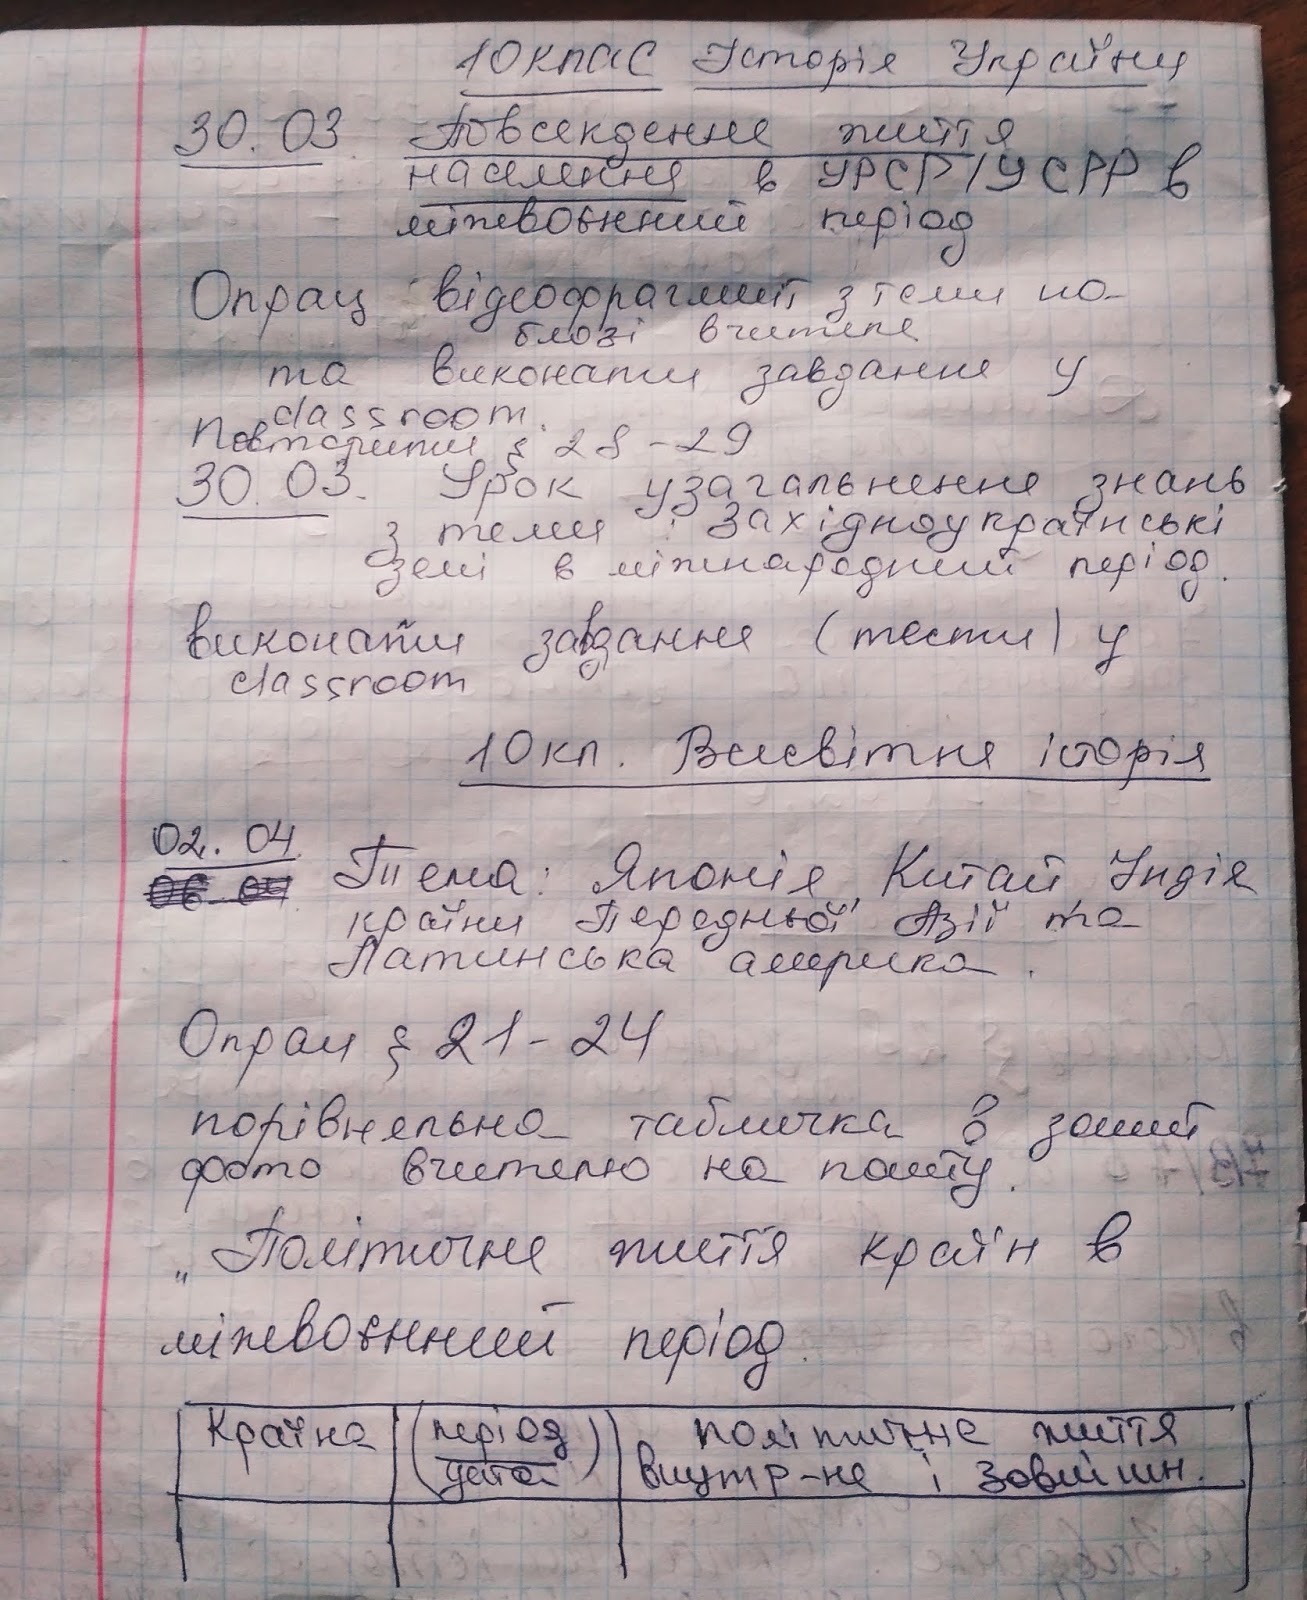 10клас Історія України
30.03 Повсякденне життя
населення в УРСР/УСРР в
міжвоєнний період
Опрац відеофрагмент з теми на
блозі вчителя
та виконати завдання у
classroom.
Повторити § 28-29
30.03. Урок узагальнення знань
з теми: західноукраїнські
землі в міжнародний період.
виконати завдання (тести) у
classroom
10кл. Всесвітня історія
02.04
06.04
Тема: Японія, Китай Індія
країни Передньої Азії та
Латинська америка.
Опрац § 21-24
порівняльна табличка в зошит
фото вчителю на пошту.
„Політичне життя країн в
міжвоєнний період
Країна (період дата) політичне життя
внутр-нє і зовнішн.